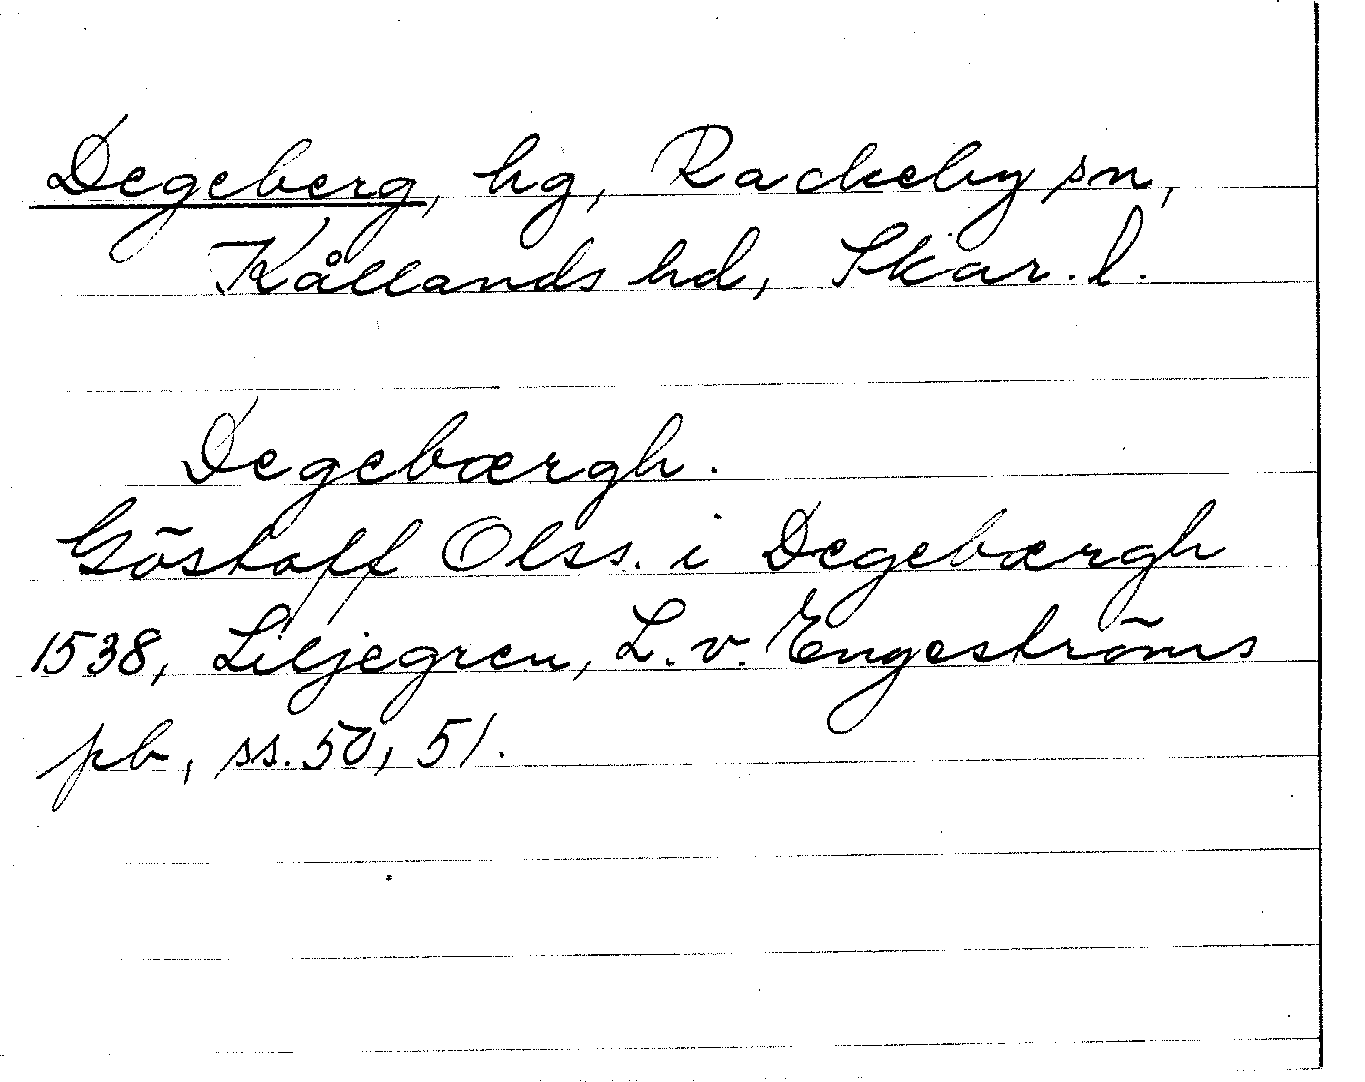 Degeberg, hg, Rackeby sn,
Kållands hd, Skar. l.
Degebærgh.
Göstaff Olss. i Degebærgh
1538, Liljegren, L. v. Engeströms
pb, ss. 50, 51.